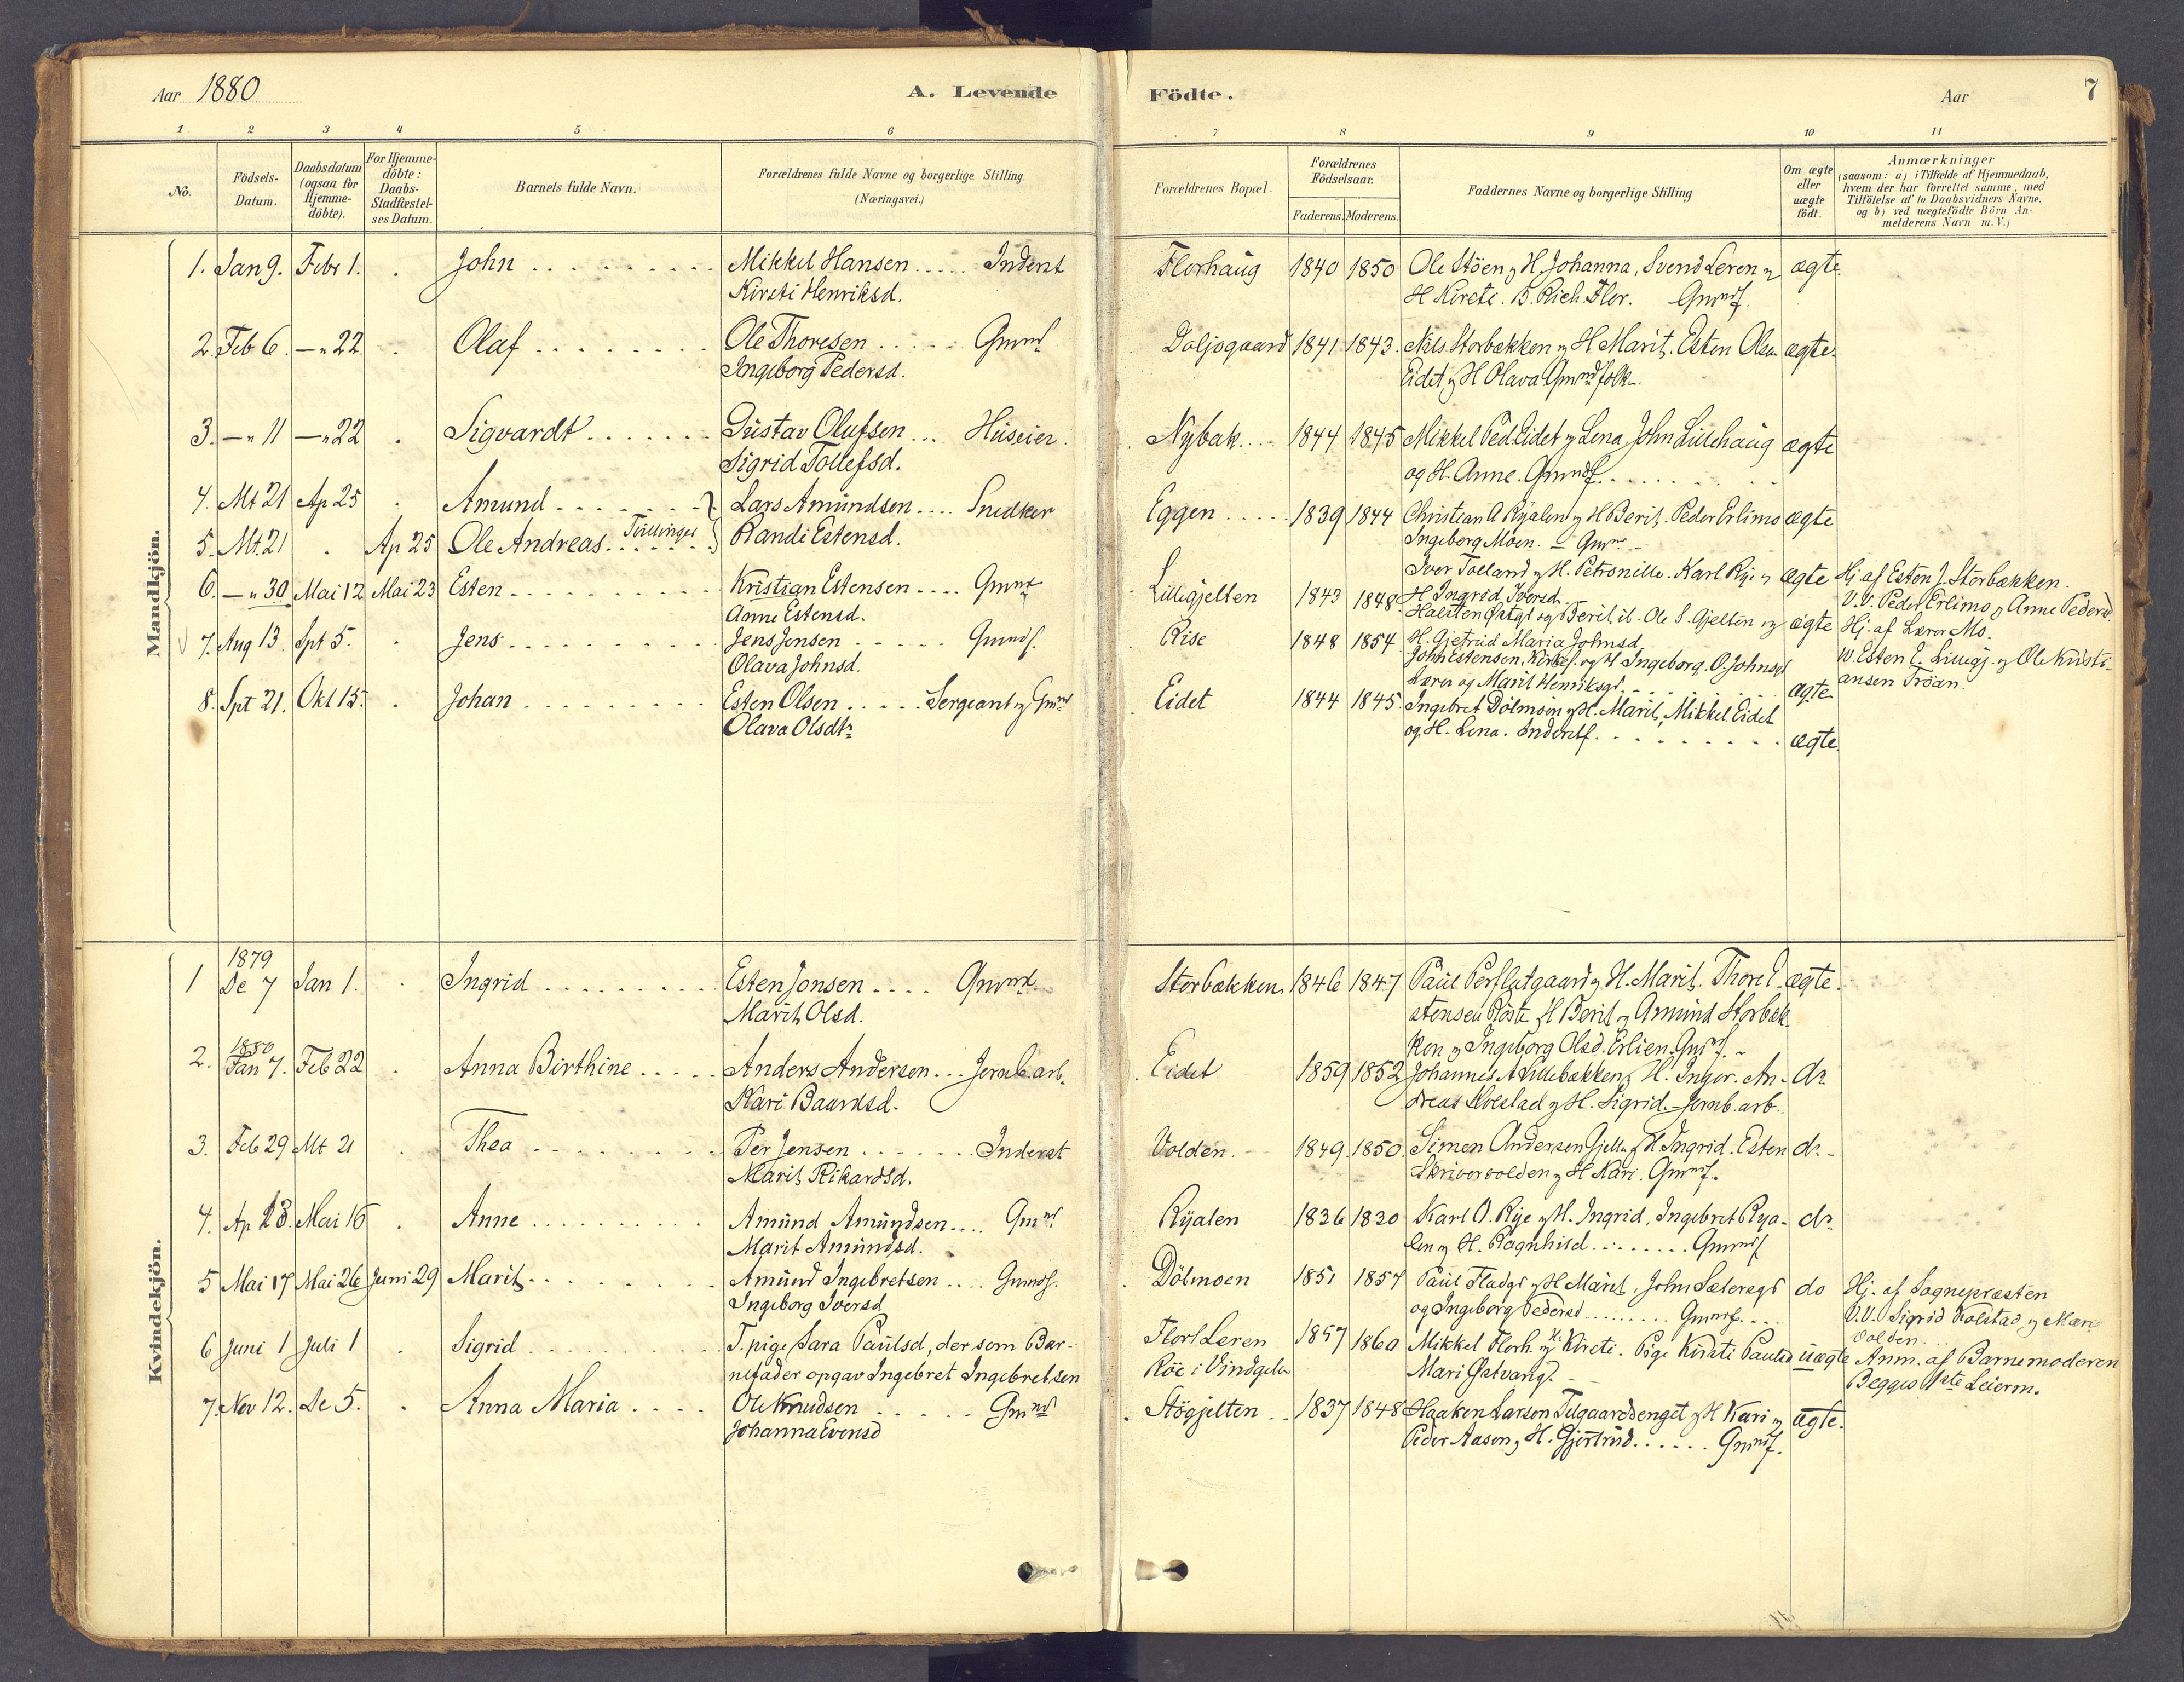 Aar 1880
A. Levende
Födte.
Aar
7
1 2 3 4 5 6 7 8 9 10 11
No.
Födsels-
Datum.
Daabsdatum
(ogsaa for
Hjemme-
döbte).
For Hjemme-
döbte:
Daabs-
Stadfæstel-
ses Datum.
Barnets fulde Navn.
Forældrenes fulde Navne og borgerlige Stilling.
(Næringsvei.)
Forældrenes Bopæl.
Forældrenes
Födselsaar.
Faderens. Moderens.
Faddernes Navne og borgerlige Stilling
Om ægte
eller
uægte
födt.
Anmærkninger
(saasom: a) i Tilfælde af Hjemmedaab,
hvem der har forrettet samme, med
Tilföielse af to Daabsvidners Navne.
og b) ved uægtefödte Börn An-
melderens Navn m. V.)
Mandkjön.
1. Jan 9. Febr 1. John Mikkel Hansen Inderst Florhaug 1840 1850 Ole Stöen og H Johanna, Svend Leren og ægte.
Kirsti Henriksd. H Kirsti. B. Rich. Flor. Gmndf.
2. Feb 6. —"22 Olaf Ole Thoresen Gmnd Doljogaard 1841 1843. Nils Storbækken og H Marit. Esten Olsen ægte.
Ingeborg Pedersd. Eidet og H Olava Gmndfolk.
3. —"11 —"22 Sigvardt Gustav Olufsen Huseier. Nybak 1844 1845 Mikkel Ped Eidet og Lena, John Lillehaug ægte
Sigrid Tollefsd. og H. Anne. Gmndf.
4. Mt 21 Ap 25 Amund Lars Amundsen Snedker Eggen 1839 1844 Christian A Ryalen og H Berit. Peder Erlimo ægte
5. Mt 21 Ap 25 Ole Andreas Tvillinger Randi Estensd. Ingeborg Moen.
6. —"30 Mai 12 Mai 23 Esten Kristian Estensen Gmnd Lillegjelten 1843 1848 Iver Tolland og H. Petronille. Karl Rye og ægte Hj af Esten J. Storbækken.
Anne Estensd. H Ingrid Iversd. V.V. Peder Erlimo og Anne Pedersd.
7. Aug 13. Spt 5. Jens Jens Jensen Gmndf. Rise 1848 1854 Berit ib. Ole S. Gjelten og ægte Hj. af Lærer Mo.
Olava Johnsd. H. Gjetrud Maria Johnsd. VV. Esten E. Lillegj. og Ole Kristi-
John Estensen, Kirkes. og H Ingeborg. O. Johnsgd ansen Tröan.
Lærer og Marit Henriksgd. ægte
8. Spt 21. Okt 15. Johan Esten Olsen Sergeant og Gmnd Eidet 1844 1845. Ingebret Dölmoen og H. Marit, Mikkel Eidet
Olava Olsdtr og H. Lena. Inderstf. ægte.
Kvindekjön.
1879
1 De 7 Jan 1. Ingrid Esten Jonsen Gmnd Storbækken 1846 1847 Paul Perflatgaard og H. Marit. Thore E- ægte.
Marit Olsd. stensen Röste og H Berit og Amund Storbæk-
ken og Ingeborg Olsd. Erlien. Gmndf.
1880
2. Jan 7. Feb 22 Anna Birthine Anders Andersen Jernb. arb. Eidet 1859 1852 Johannes A Lillebækken og H. Inger. An- do
Kari Baardsd. dreas og H. Sigrid. Jernb. arb.
3. Feb 29 Mt 21 Thea Per Jensen Inderst Volden. 1849. 1850. Simen Andersen Gjelten og H Ingrid. Esten do
Marit Rikardsd. Skrivervolden og H Kari. Gmndf.
4. Ap 13. Mai 16 Anne Amund Amundsen Gmnd Ryalen 1836 1830 Karl O. Rye og H. Ingrid, Ingebret Rya- do
Marit Amundsd. len og H. Ragnhild Gmndf
5 Mai 17 Mai 26 Juni 29 Marit Amund Ingebretsen Gmndf. Dölmoen 1851 1857 Paul Fladgd og H Marit, John Sætersgd do Hj. af Sognepræsten
Ingeborg Iversd og Ingeborg Pedersd Gmndf. V.V. Sigrid Kolstad og
6 Juni 1 Juli 1 Sigrid T. pige Sara Paulsd, der som Bar- Flort Leren 1857 1860 Mikkel Florh. og H. Kirsti. Pige Kirsti Paulsd uægte Volden. Anm. af Barnemoderen
nefader opgav Ingebret Ingebretsen Röe i Vindgeln Mari Begges 1ste Leierm.
7. Nov 12. De 5. Anna Maria Ole Knudsen Gmnd Stögjelten 1837 1848 Haaken Larsen Telgaardenget og H Kari og ægte.
Johanna Evensd Peder Aasen og H. Gjertrud Gmndf.